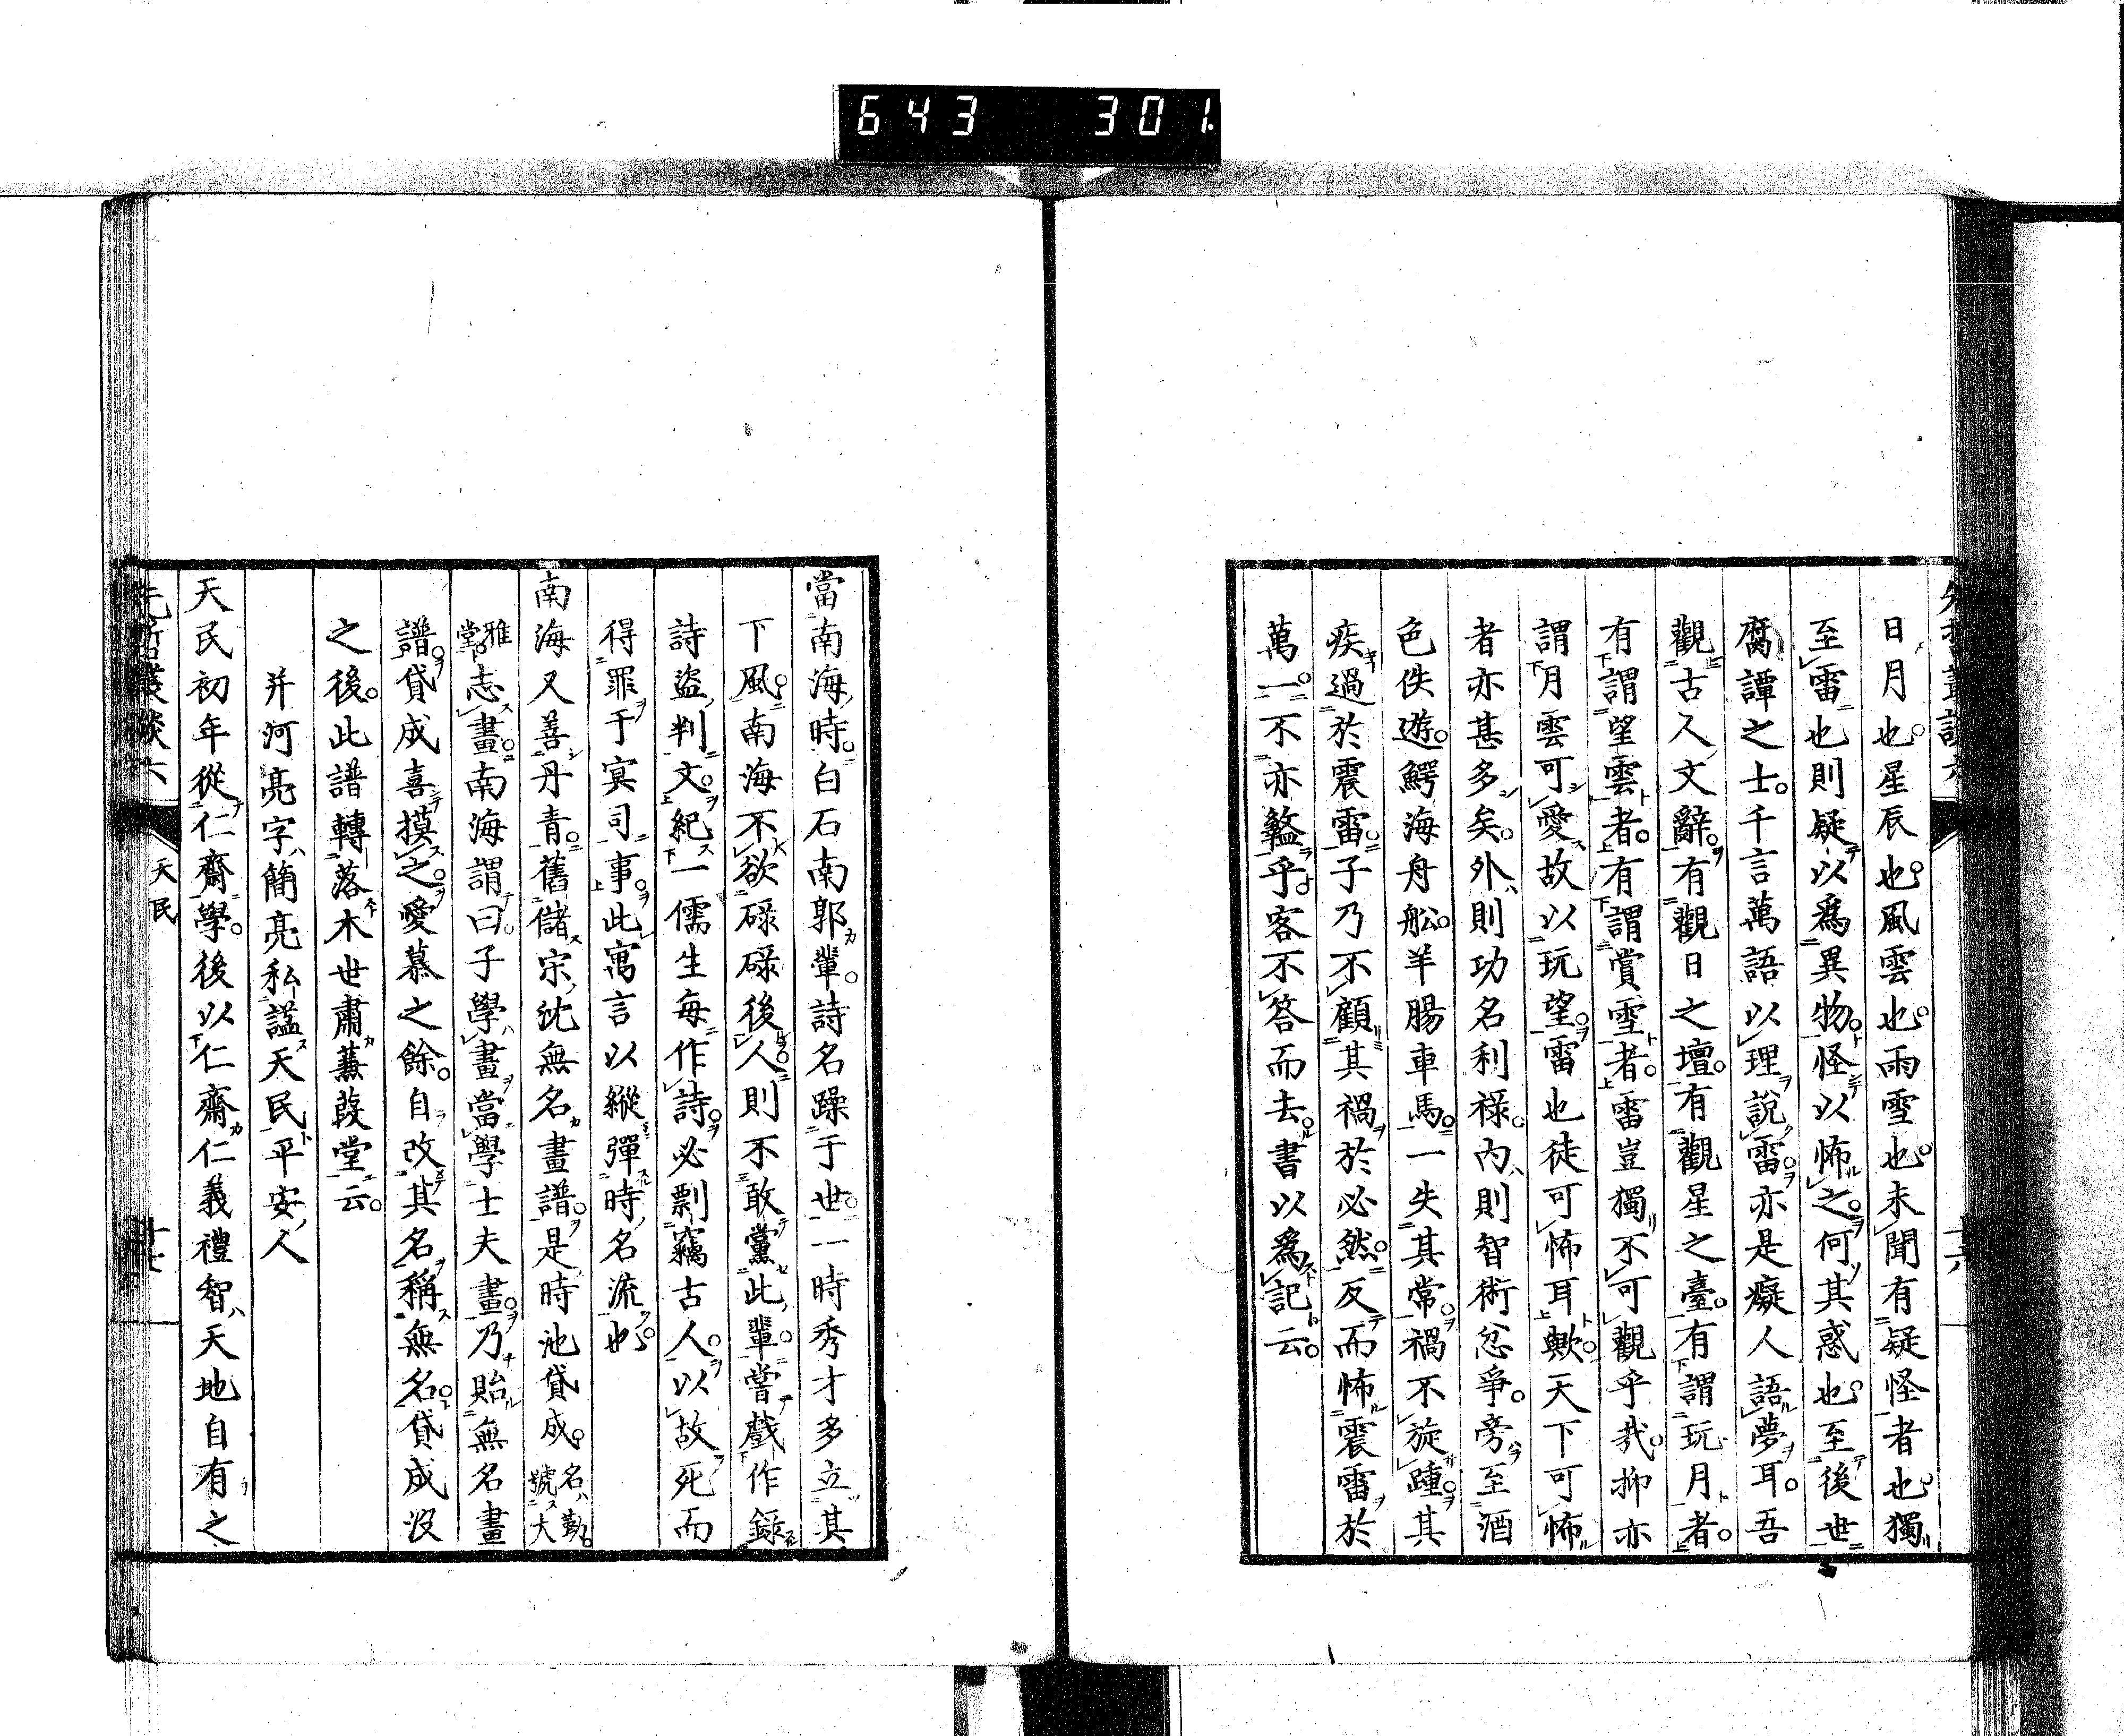 643 301
先哲叢談六
十六
日月也。星辰也。風雲也。雨雪也。未聞有疑怪者也。獨
至雷也則疑以爲異物。怪以怖之。何其惑也。至後世
腐譚之士。千言萬語以理說雷。亦是癡人語夢耳。吾
觀古人文辭。有觀日之壇。有觀星之臺。有謂玩月者。
有謂望雲者。有謂賞雪者。雷豈獨不可觀乎哉。抑亦
謂月雲可愛故以玩望。雷也徒可怖耳歟。天下可怖
者亦甚多矣。外則功名利祿。內則智術忿爭。旁至酒
色佚遊。鰐海舟舩。羊腸車馬。一失其常。禍不旋踵。其
疾過於震雷。子乃不顧其禍於必然。反而怖震雷於
萬一。不亦盭乎。客不答而去。書以爲記云。
當南海時。白石南郭輩。詩名躁于世。一時秀才多立其
下風。南海不欲碌碌後人。則不敢黨此輩。嘗戲作錄
詩盜判文。紀一儒生每作詩。必剽竊古人。以故死而
得罪于冥司事。此寓言以縱彈時名流也
南海又善丹青。舊儲宋沈無名畫譜。是時池貸成。名勤。號大
雅堂志畫。南海謂曰。子學畫當學士夫畫。乃貽無名畫
譜。貸成喜摸之。愛慕之餘。自改其名稱無名。貸成沒
之後。此譜轉落木世肅蒹葭堂云。
并河亮字簡亮私謚天民平安人
天民初年從仁齋學。後以仁齋仁義禮智。天地自有之
先哲叢談六
天民
十七